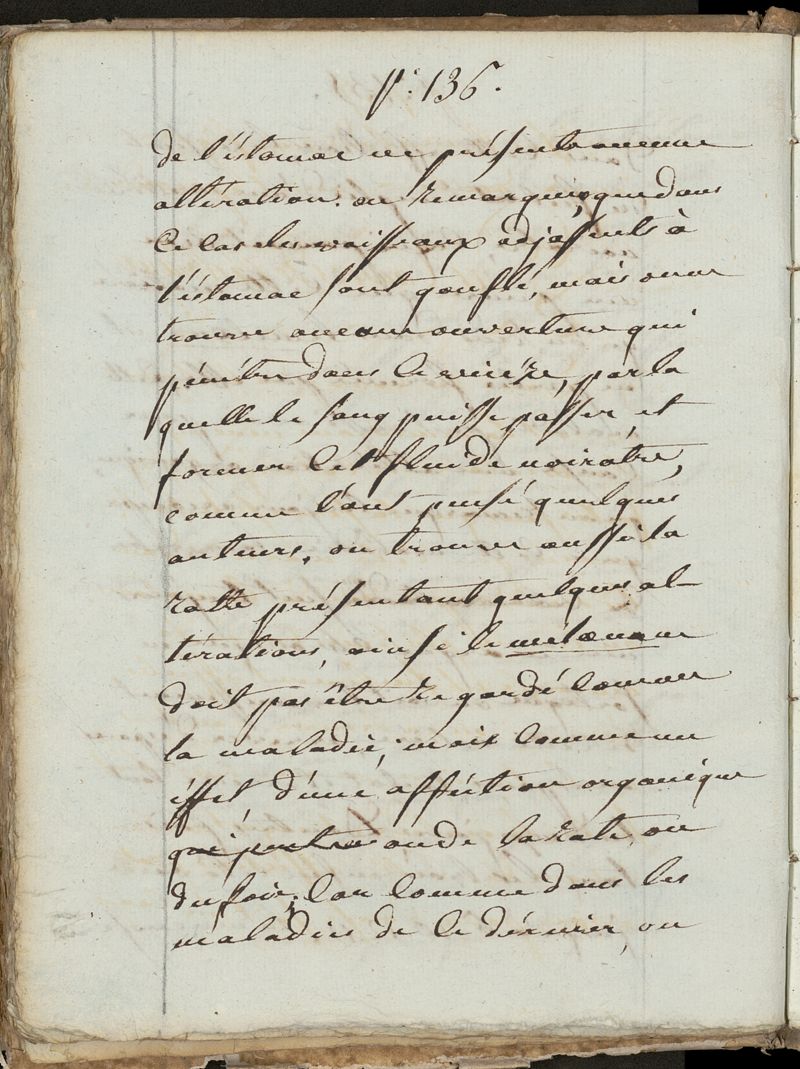 p. 136.
de l'éstomac ne présente aucune
altération. on remarque que dans
ce cas les vaisseaux adjassents à
l'éstomac sont gonflé, mais on ne
trouve aucune ouverture qui
pénétre dans le vicére, par la
quelle le sang puisse passer, et
former cet fluide noiratre,
comme l'ont pensé quelques
auteurs, on trouve aussi la
ratte présentant quelques al-
térations, ainsi le mélæna ne
doit pas être regardé comme
la maladie, mais comme un
éffet, d'une afféction organique
qui peut être ou de la rate, ou
du foie, car comme dans les
maladies de ce dérnier, on